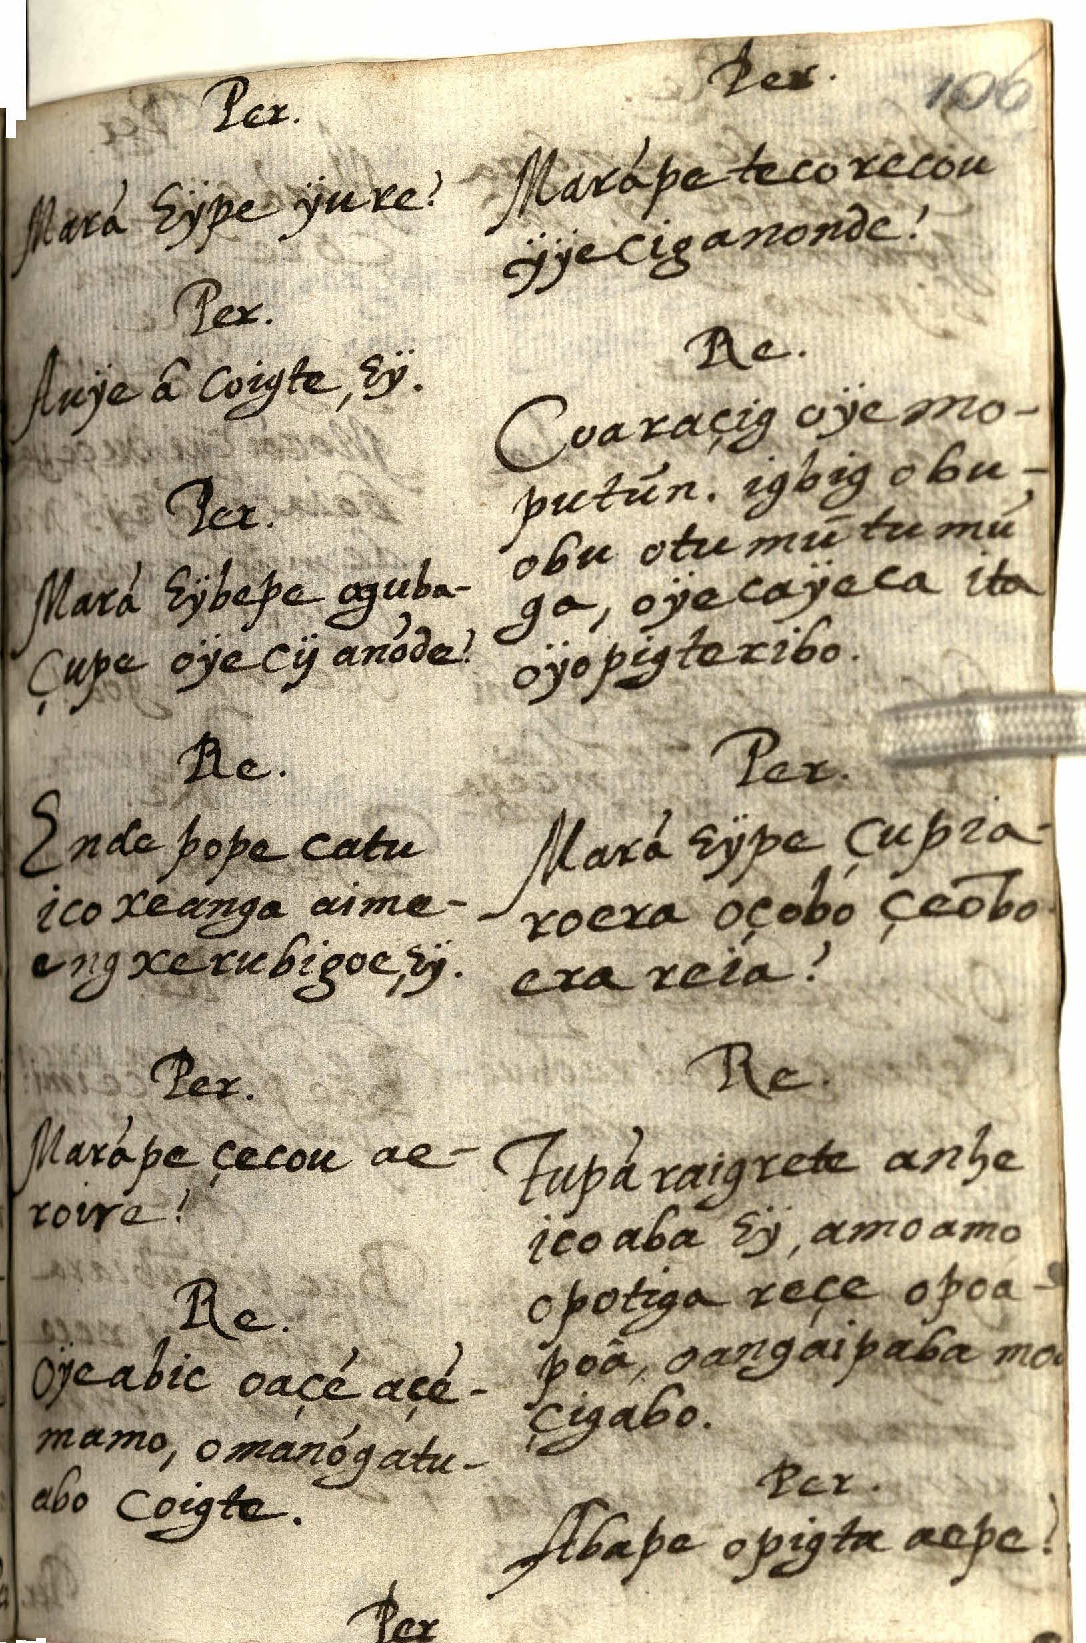 Per.
Marâ Eÿpe ÿure?
Per.
Auÿe â Coigte, Eÿ.
Per.
Marâ Eÿbepe oguba-
Çupe oÿecÿ anõde?
Re.
Ende pope catu
ico xeanga aime-
eng xe rubigoe, Eÿ.
Per.
Marápe çecou ae-
roire?
Re.
Oÿeabic oaçé açé-
mamo, omanógatu-
abo Coigte.
Per
106
Per.
Marápe tecorecou
ÿÿeciganonde?
Re.
Coaraçig oÿemo-
putũn. igbig obu-
obu otumũtumũ
ga, oÿecaÿeca ita
oÿopigteribo.
Per.
Marâ Eÿpe çupia-
roera oçobo çeõbo
era reia?
Re.
Tupâ raigrete anhe
ico aba Eÿ, amoamo
opotiga reçe opoa-
poâ, oangaipaba mo
çigabo.
Per.
Abape opigta aepe?